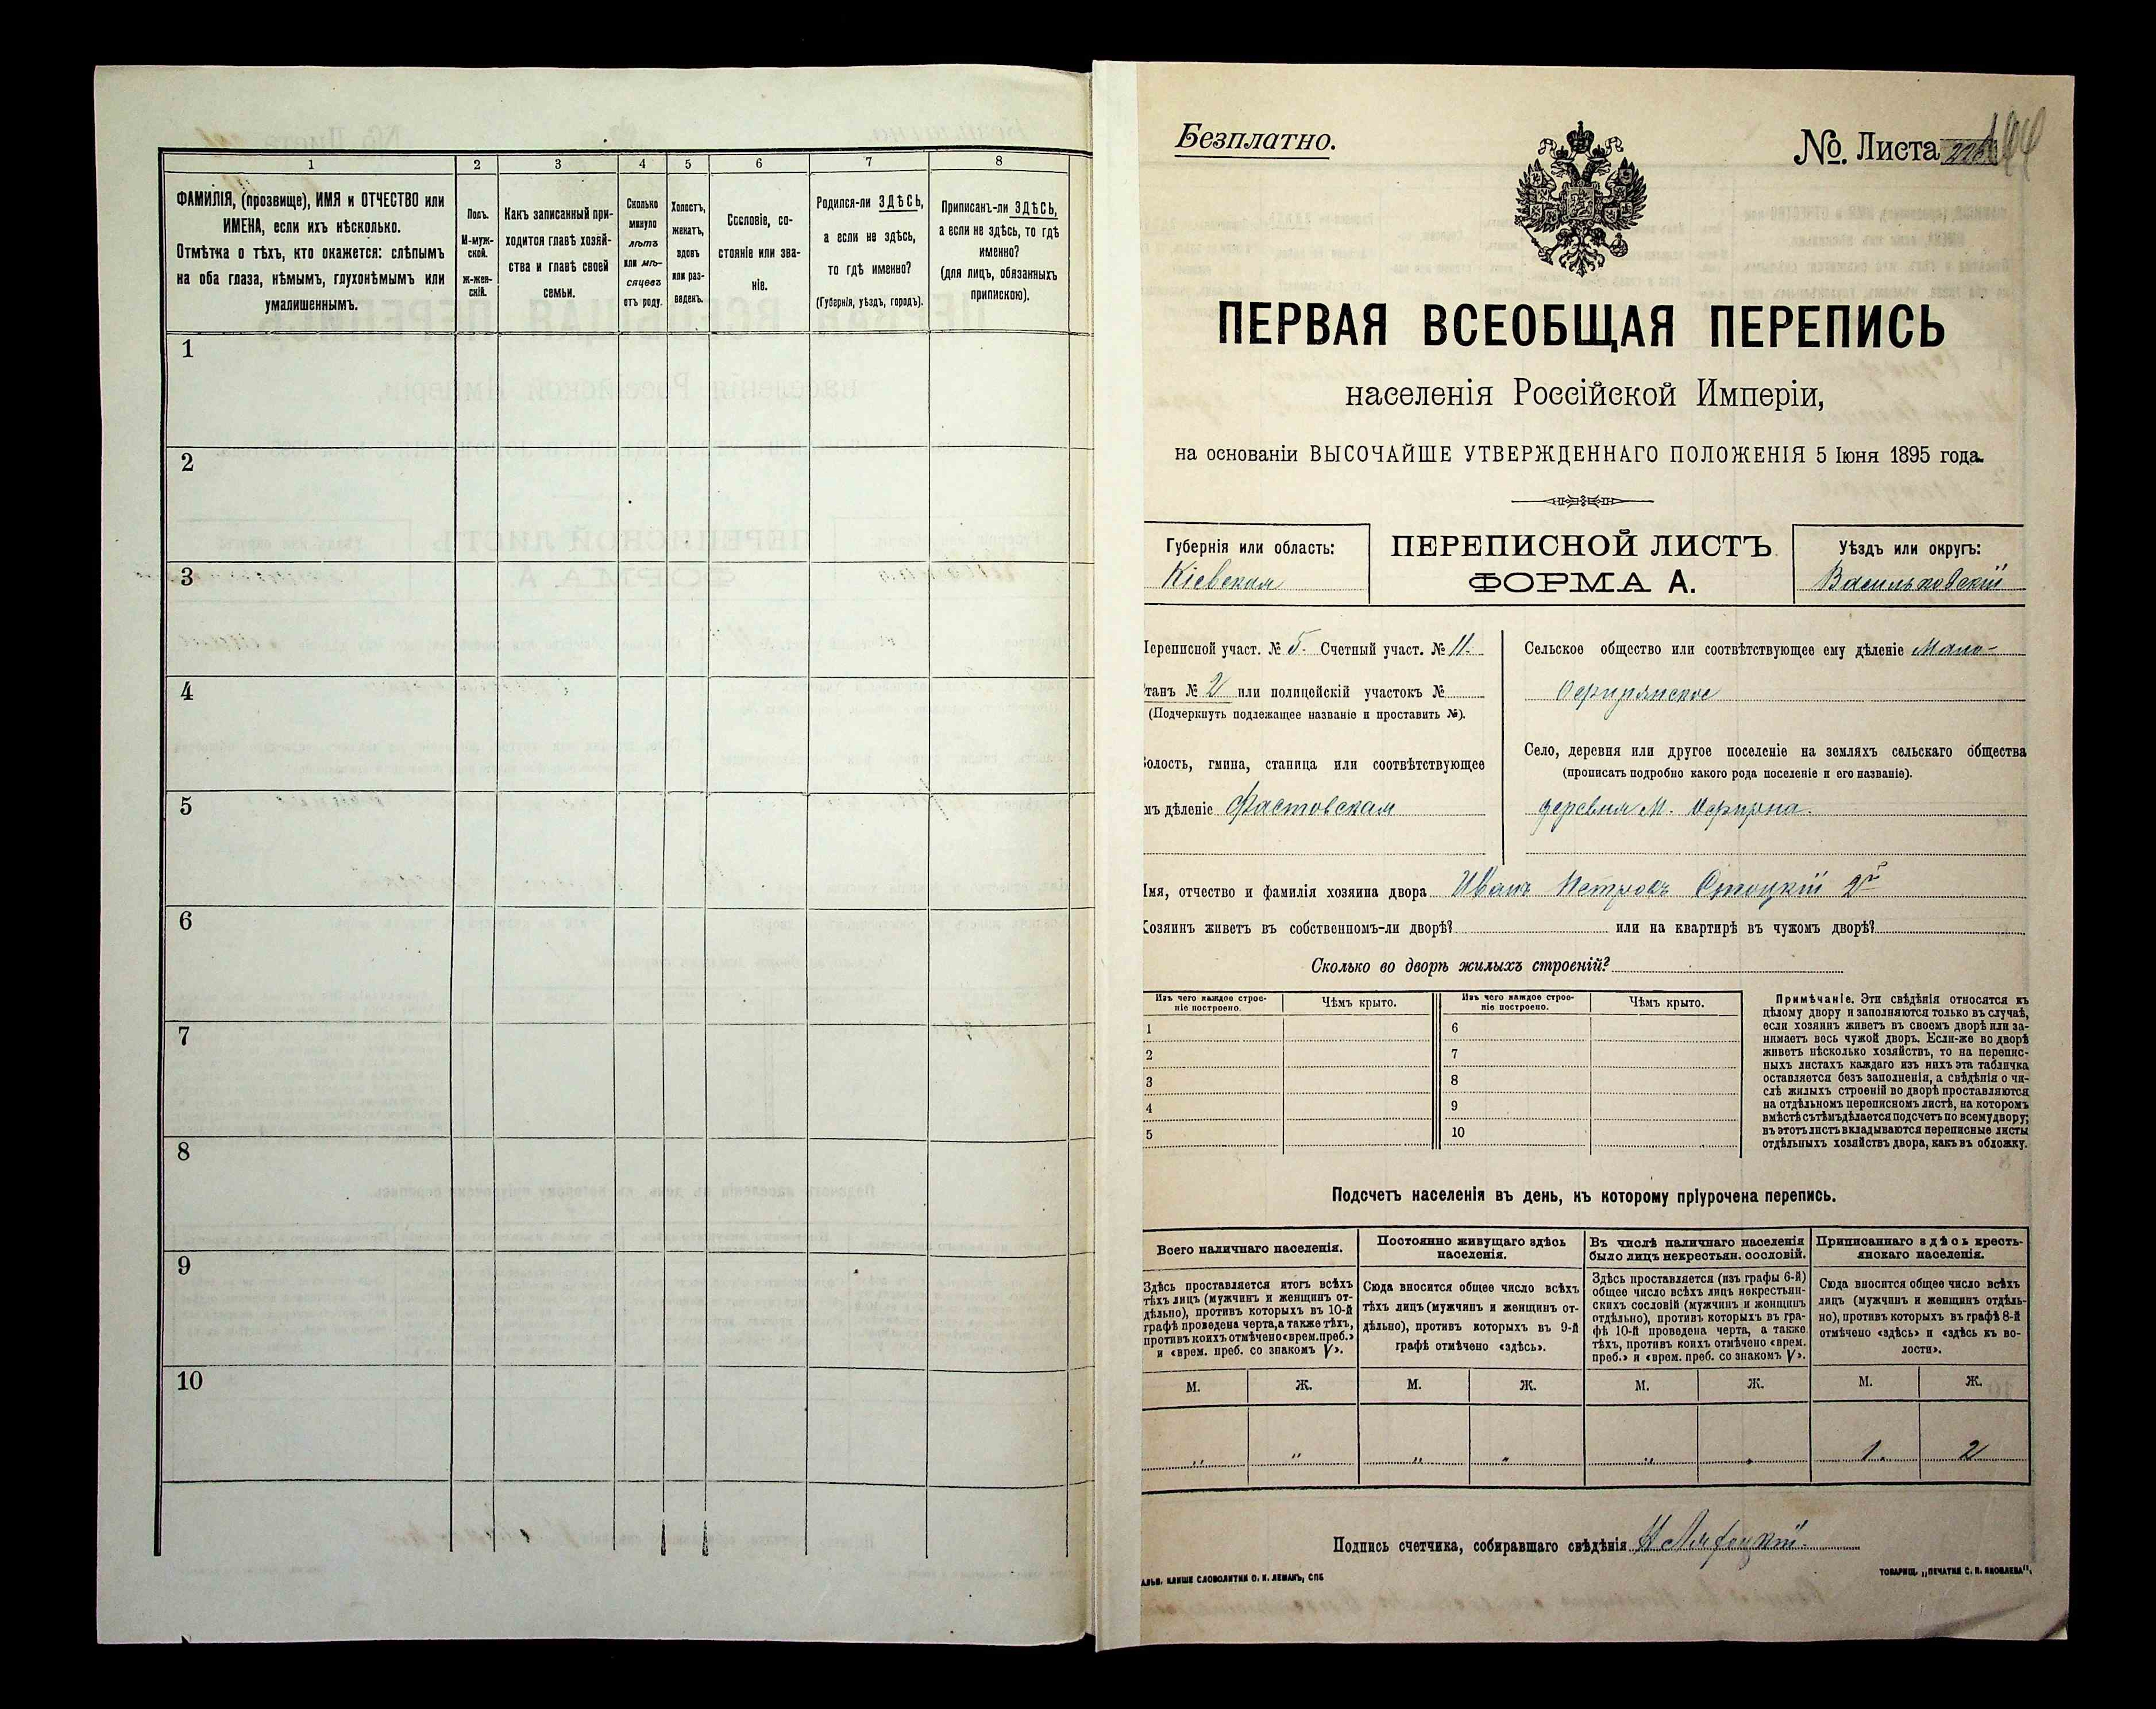 1
2
3
4
5
6
7
8
ФАМИЛІЯ, (прозвище), ИМЯ и ОТЧЕСТВО или
ИМЕНА, если ихъ нѣсколько.
Отмѣтка о тѣхъ, кто окажется: слѣпымъ
на оба глаза, нѣмымъ, глухонѣмымъ или
умалишеннымъ.
Полъ.
М-муж-
ской.
ж-жен-
скій.
Какъ записанный при-
ходится главѣ хозяй-
ства и главѣ своей
семьи.
Сколько
минуло
лѣтъ
или мѣ-
сяцевъ
отъ роду.
Холостъ,
женатъ,
вдовъ
или раз-
веденъ.
Сословіе, со-
стояніе или зва-
ніе.
Родился-ли ЗДѢСЬ,
а если не здѣсь,
то гдѣ именно?
(Губернія, уѣздъ, городъ).
Приписанъ-ли ЗДѢСЬ,
а если не здѣсь, то гдѣ
именно?
(для лицъ, обязанныхъ
припискою).
1
2
3
4
5
6
7
8
9
10
Безплатно.
№. Листа
ПЕРВАЯ ВСЕОБЩАЯ ПЕРЕПИСЬ
населенія Россійской Имперіи,
на основаніи ВЫСОЧАЙШЕ УТВЕРЖДЕННАГО ПОЛОЖЕНІЯ 5 Іюня 1895 года.
Губернія или область:
Кіевская
ПЕРЕПИСНОЙ ЛИСТЪ
ФОРМА А.
Уѣздъ или округъ:
Васильковскій
Переписной участ. № 5. Счетный участ. № 11.
танъ № 2 или полицейскій участокъ №
(Подчеркнуть подлежащее названіе и проставить №).
олость, гмина, станица или соотвѣтствующее
мъ дѣленіе Фастовская
Сельское общество или соотвѣтствующее ему дѣленіе Мало-
Село, деревня или другое поселеніе на земляхъ сельскаго общества
(прописать подробно какого рода поселеніе и его названіе).
деревня М.
Имя, отчество и фамилія хозяина двора Иванъ Петровъ Стоцкій 2й
Хозяинъ живетъ въ собственномъ-ли дворѣ? или на квартирѣ въ чужомъ дворѣ?
Сколько во дворѣ жилыхъ строеній?
Изъ чего каждое строе-
ніе построено.
Чѣмъ крыто.
Изъ чего каждое строе-
ніе построено.
Чѣмъ крыто.
1
2
3
4
5
6
7
8
9
10
Примѣчаніе. Эти свѣдѣнія относятся къ
цѣлому двору и заполняются только въ случаѣ,
если хозяинъ живетъ въ своемъ дворѣ или за-
нимаетъ весь чужой дворъ. Если-же во дворѣ
живетъ нѣсколько хозяйствъ, то на перепис-
ныхъ листахъ каждаго изъ нихъ эта табличка
оставляется безъ заполненія, а свѣдѣнія о чи-
слѣ жилыхъ строеній во дворѣ проставляются
на отдѣльномъ переписномъ листѣ, на которомъ
вмѣстѣ съ тѣмъ дѣлается подсчетъ по всему двору;
въ этотъ листъ вкладываются переписные листы
отдѣльныхъ хозяйствъ двора, какъ въ обложку.
Подсчетъ населенія въ день, къ которому пріурочена перепись.
Всего наличнаго населенія.
Здѣсь проставляется итогъ всѣхъ
тѣхъ лицъ (мужчинъ и женщинъ от-
дѣльно), противъ которыхъ въ 10-й
графѣ проведена черта, а также тѣхъ,
противъ коихъ отмѣчено «врем. преб.»
и «врем. преб. со знакомъ V».
Постоянно живущаго здѣсь
населенія.
Сюда вносится общее число всѣхъ
тѣхъ лицъ (мужчинъ и женщинъ от-
дѣльно), противъ которыхъ въ 9-й
графѣ отмѣчено «здѣсь».
Въ числѣ наличнаго населенія
было лицъ некрестьян. сословій.
Здѣсь проставляется (изъ графы 6-й)
общее число всѣхъ лицъ некрестьян-
скихъ сословій (мужчинъ и женщинъ
отдѣльно), противъ которыхъ въ гра-
фѣ 10-й проведена черта, а также
тѣхъ, противъ коихъ отмѣчено «врем.
преб.» и «врем. преб. со знакомъ V».
Приписаннаго здѣсь кресть-
янскаго населенія.
Сюда вносится общее число всѣхъ
лицъ (мужчинъ и женщинъ отдѣль-
но), противъ которыхъ въ графѣ 8-й
отмѣчено «здѣсь» и «здѣсь къ во-
лости».
М. Ж. М. Ж. М. Ж. М. Ж.
" " " " " " 1. 2
Подпись счетчика, собиравшаго свѣдѣнія
КЛИШЕ СЛОВОЛИТНИ О. И. ЛЕМАНЪ, СПБ
ТОВАРИЩ. „ПЕЧАТНЯ С. П. ЯКОВЛЕВА",